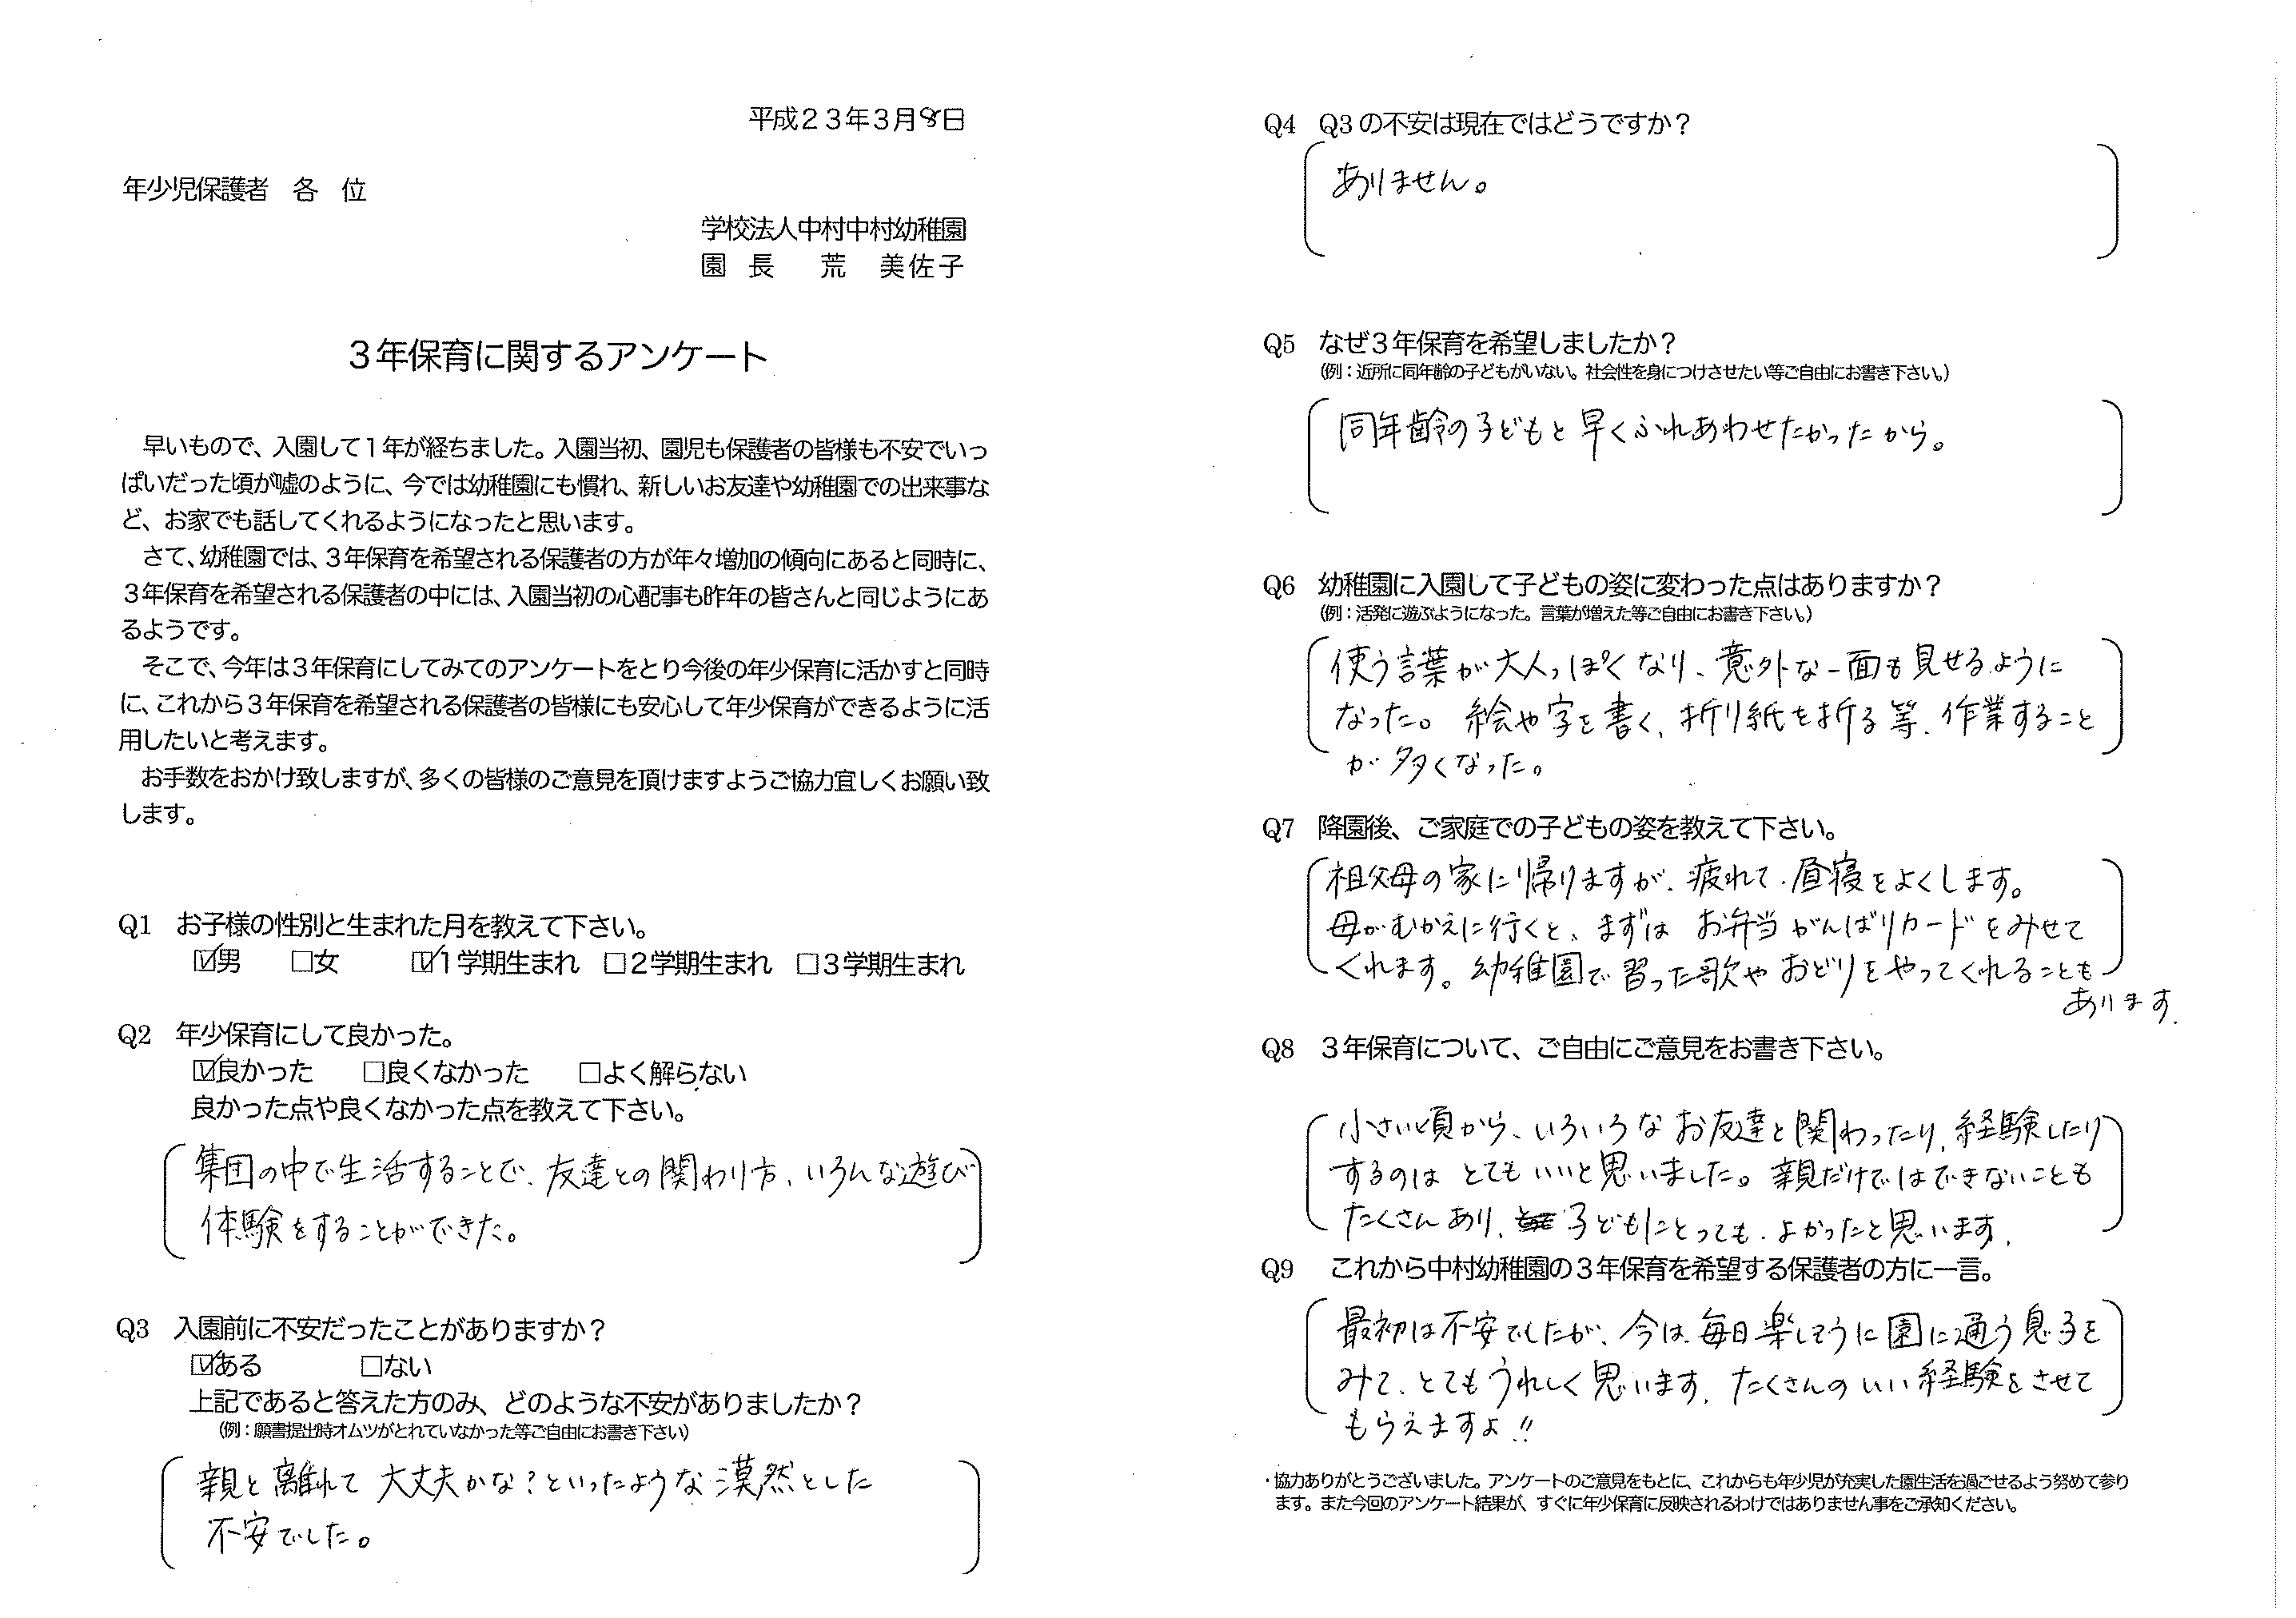 平成２３年３月８日
年少児保護者　各　位
学校法人中村中村幼稚園
園　長　　荒　美佐子
３年保育に関するアンケート
早いもので、入園して１年が経ちました。入園当初、園児も保護者の皆様も不安でいっ
ぱいだった頃が嘘のように、今では幼稚園にも慣れ、新しいお友達や幼稚園での出来事な
ど、お家でも話してくれるようになったと思います。
さて、幼稚園では、３年保育を希望される保護者の方が年々増加の傾向にあると同時に、
３年保育を希望される保護者の中には、入園当初の心配事も昨年の皆さんと同じようにあ
るようです。
そこで、今年は３年保育にしてみてのアンケートをとり今後の年少保育に活かすと同時
に、これから３年保育を希望される保護者の皆様にも安心して年少保育ができるように活
用したいと考えます。
お手数をおかけ致しますが、多くの皆様のご意見を頂けますようご協力宜しくお願い致
します。
Q1　お子様の性別と生まれた月を教えて下さい。
☑男　□女　☑１学期生まれ　□２学期生まれ　□３学期生まれ
Q2　年少保育にして良かった。
☑良かった　□良くなかった　□よく解らない
良かった点や良くなかった点を教えて下さい。
集団の中で生活することで、友達との関わり方、いろんな遊び
体験をすることができた。
Q3　入園前に不安だったことがありますか？
☑ある　□ない
上記であると答えた方のみ、どのような不安がありましたか？
（例：願書提出時オムツがとれていなかった等ご自由にお書き下さい）
親と離れて大丈夫かな？といったような漠然とした
不安でした。
Q4　Q3の不安は現在ではどうですか？
ありません。
Q5　なぜ３年保育を希望しましたか？
（例：近所に同年齢の子どもがいない。社会性を身につけさせたい等ご自由にお書き下さい。）
同年齢の子どもと早くふれあわせたかったから。
Q6　幼稚園に入園して子どもの姿に変わった点はありますか？
（例：活発に遊ぶようになった。言葉が増えた等ご自由にお書き下さい。）
使う言葉が大人っぽくなり、意外な一面も見せるように
なった。絵や字を書く、折り紙を折る等、作業すること
が多くなった。
Q7　降園後、ご家庭での子どもの姿を教えて下さい。
祖父母の家に帰りますが、疲れて、昼寝をよくします。
母がむかえに行くと、まずは お弁当がんばりカードをみせて
くれます。幼稚園で習った歌やおどりをやってくれることも
あります。
Q8　３年保育について、ご自由にご意見をお書き下さい。
小さい頃から、いろいろなお友達と関わったり、経験したり
するのは とてもいいと思いました。親だけではできないことも
たくさんあり、子どもにとっても、よかったと思います。
Q9　これから中村幼稚園の３年保育を希望する保護者の方に一言。
最初は不安でしたが、今は、毎日楽しそうに園に通う息子を
みて、とてもうれしく思います。たくさんのいい経験をさせて
もらえますよ!!
・協力ありがとうございました。アンケートのご意見をもとに、これからも年少児が充実した園生活を過ごせるよう努めて参り
ます。また今回のアンケート結果が、すぐに年少保育に反映されるわけではありません事をご承知ください。